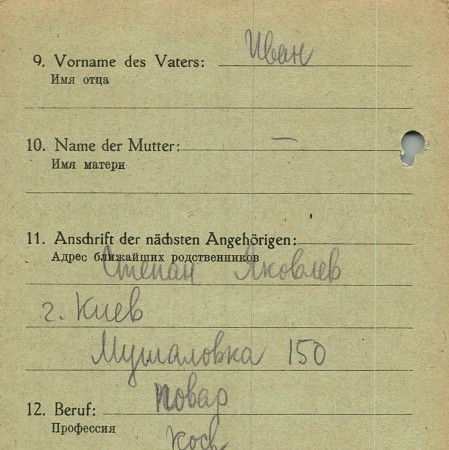 9. Vorname des Vaters: Иван
Имя отца
10. Name der Mutter: —
Имя матери
11. Anschrift der nächsten Angehörigen:
Адрес ближайших родственников
Степан Яковлев
г. Киев
Мушаловка 150
повар
12. Beruf:
Профессия
Koch